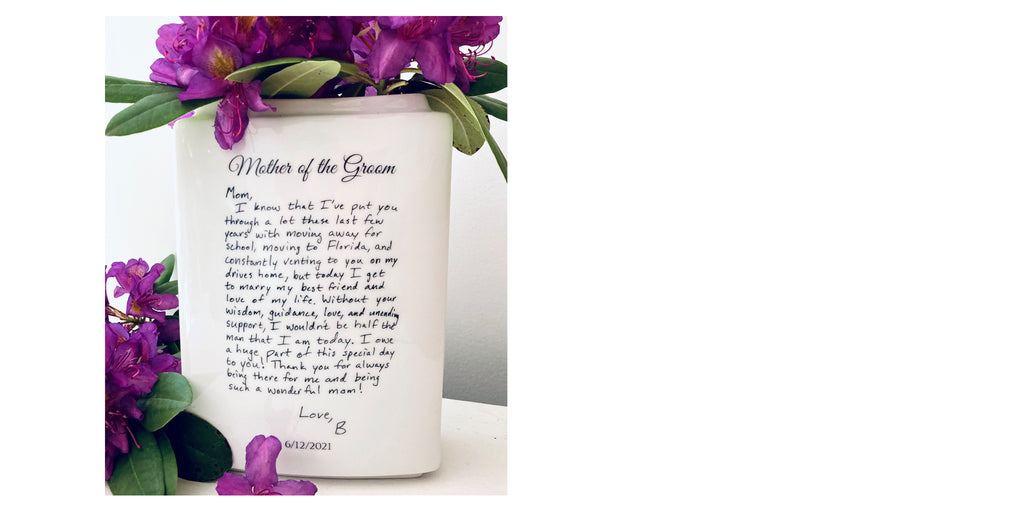 Mother of the Groom
Mom,
I know that I've put you
through a lot these last few
years with moving away for
school, moving to Florida, and
constantly venting to you on my
drives home, but today I get
to marry my best friend and
love of my life. Without your
wisdom, guidance, love, and unending
support, I wouldn't be half the
man that I am today. I owe
a huge part of this special day
to you! Thank you for always
being there for me and being
such a wonderful mom!
Love,
B
6/12/2021